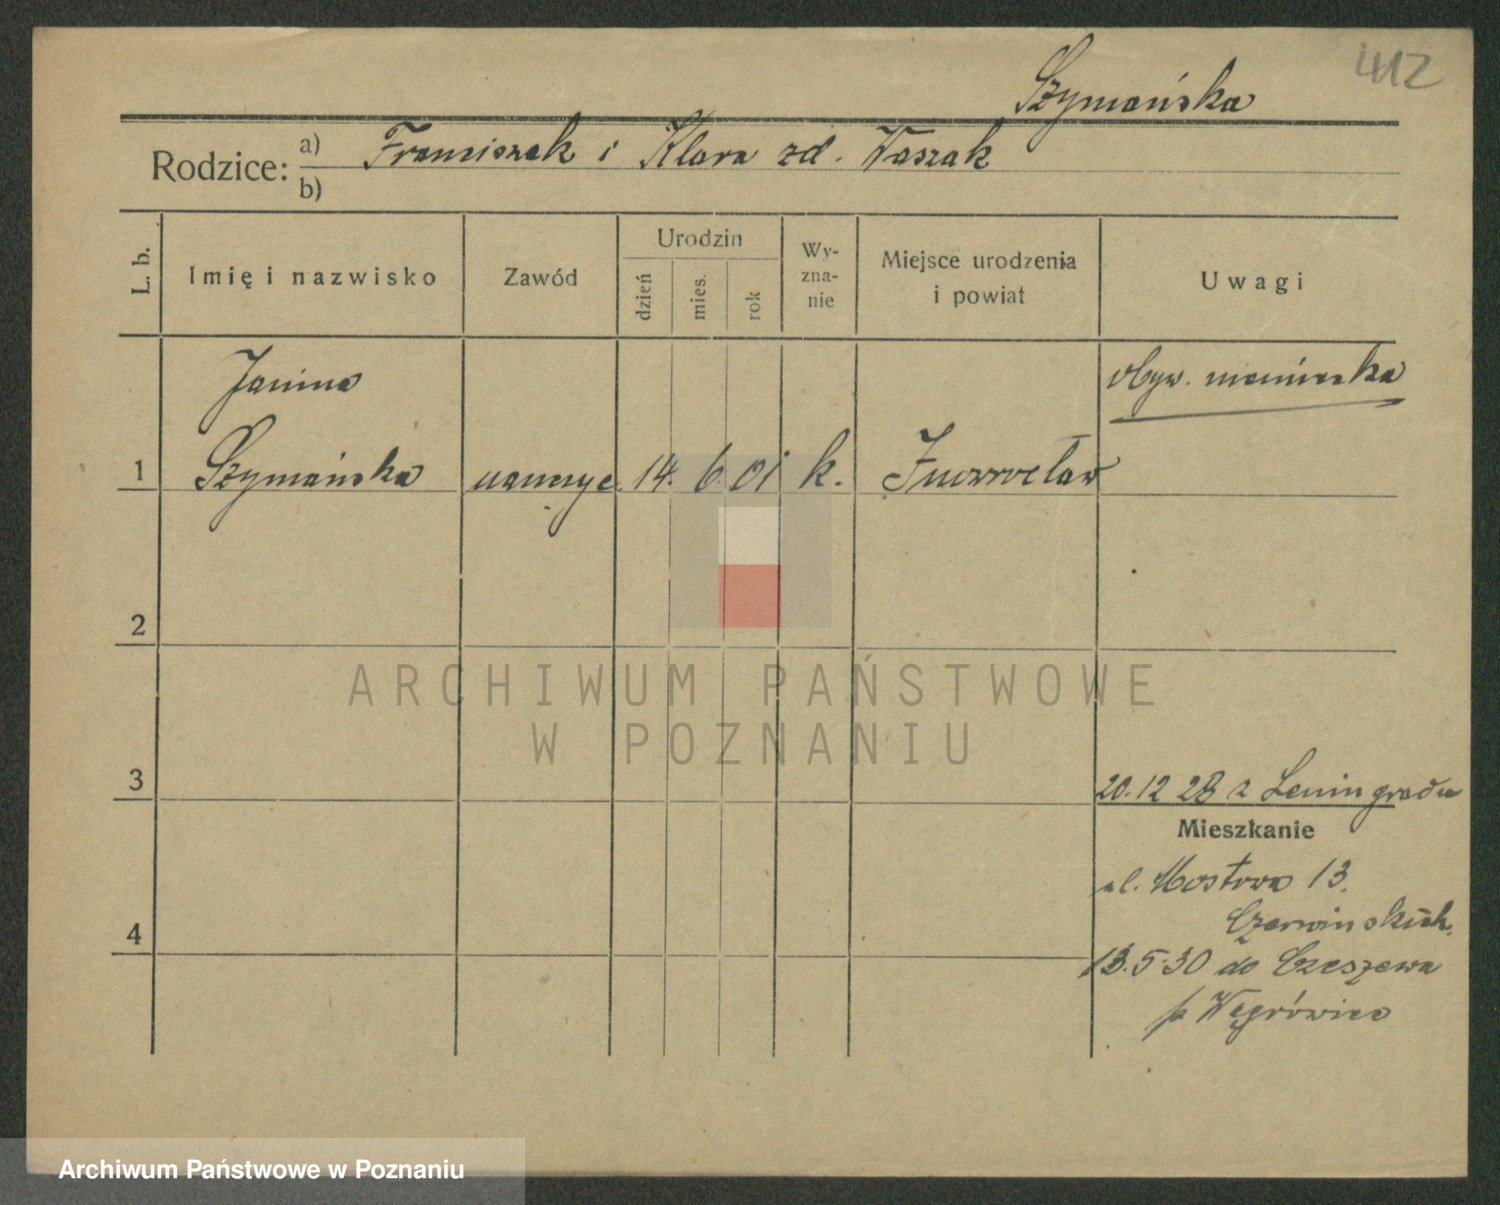 Szymańska
412
Rodzice: a) Franciszek i Klara zd. Waszak
b)
L. b.
Imię i nazwisko
Zawód
Urodzin
dzień
mies.
rok
Wy-
zna-
nie
Miejsce urodzenia
i powiat
Uwagi
Janina
obyw. niemiecka
1 Szymańska nauczyc. 14. 6. 01 k. Inowrocław
2
ARCHIWUM PAŃSTWOWE
W POZNANIU
3
20.12 28 z Leningradu
Mieszkanie
ul. Mostowa 13.
Czerwińskich.
4
13.5.30 do Czeszewa
Wągrówiec
Archiwum Państwowe w Poznaniu